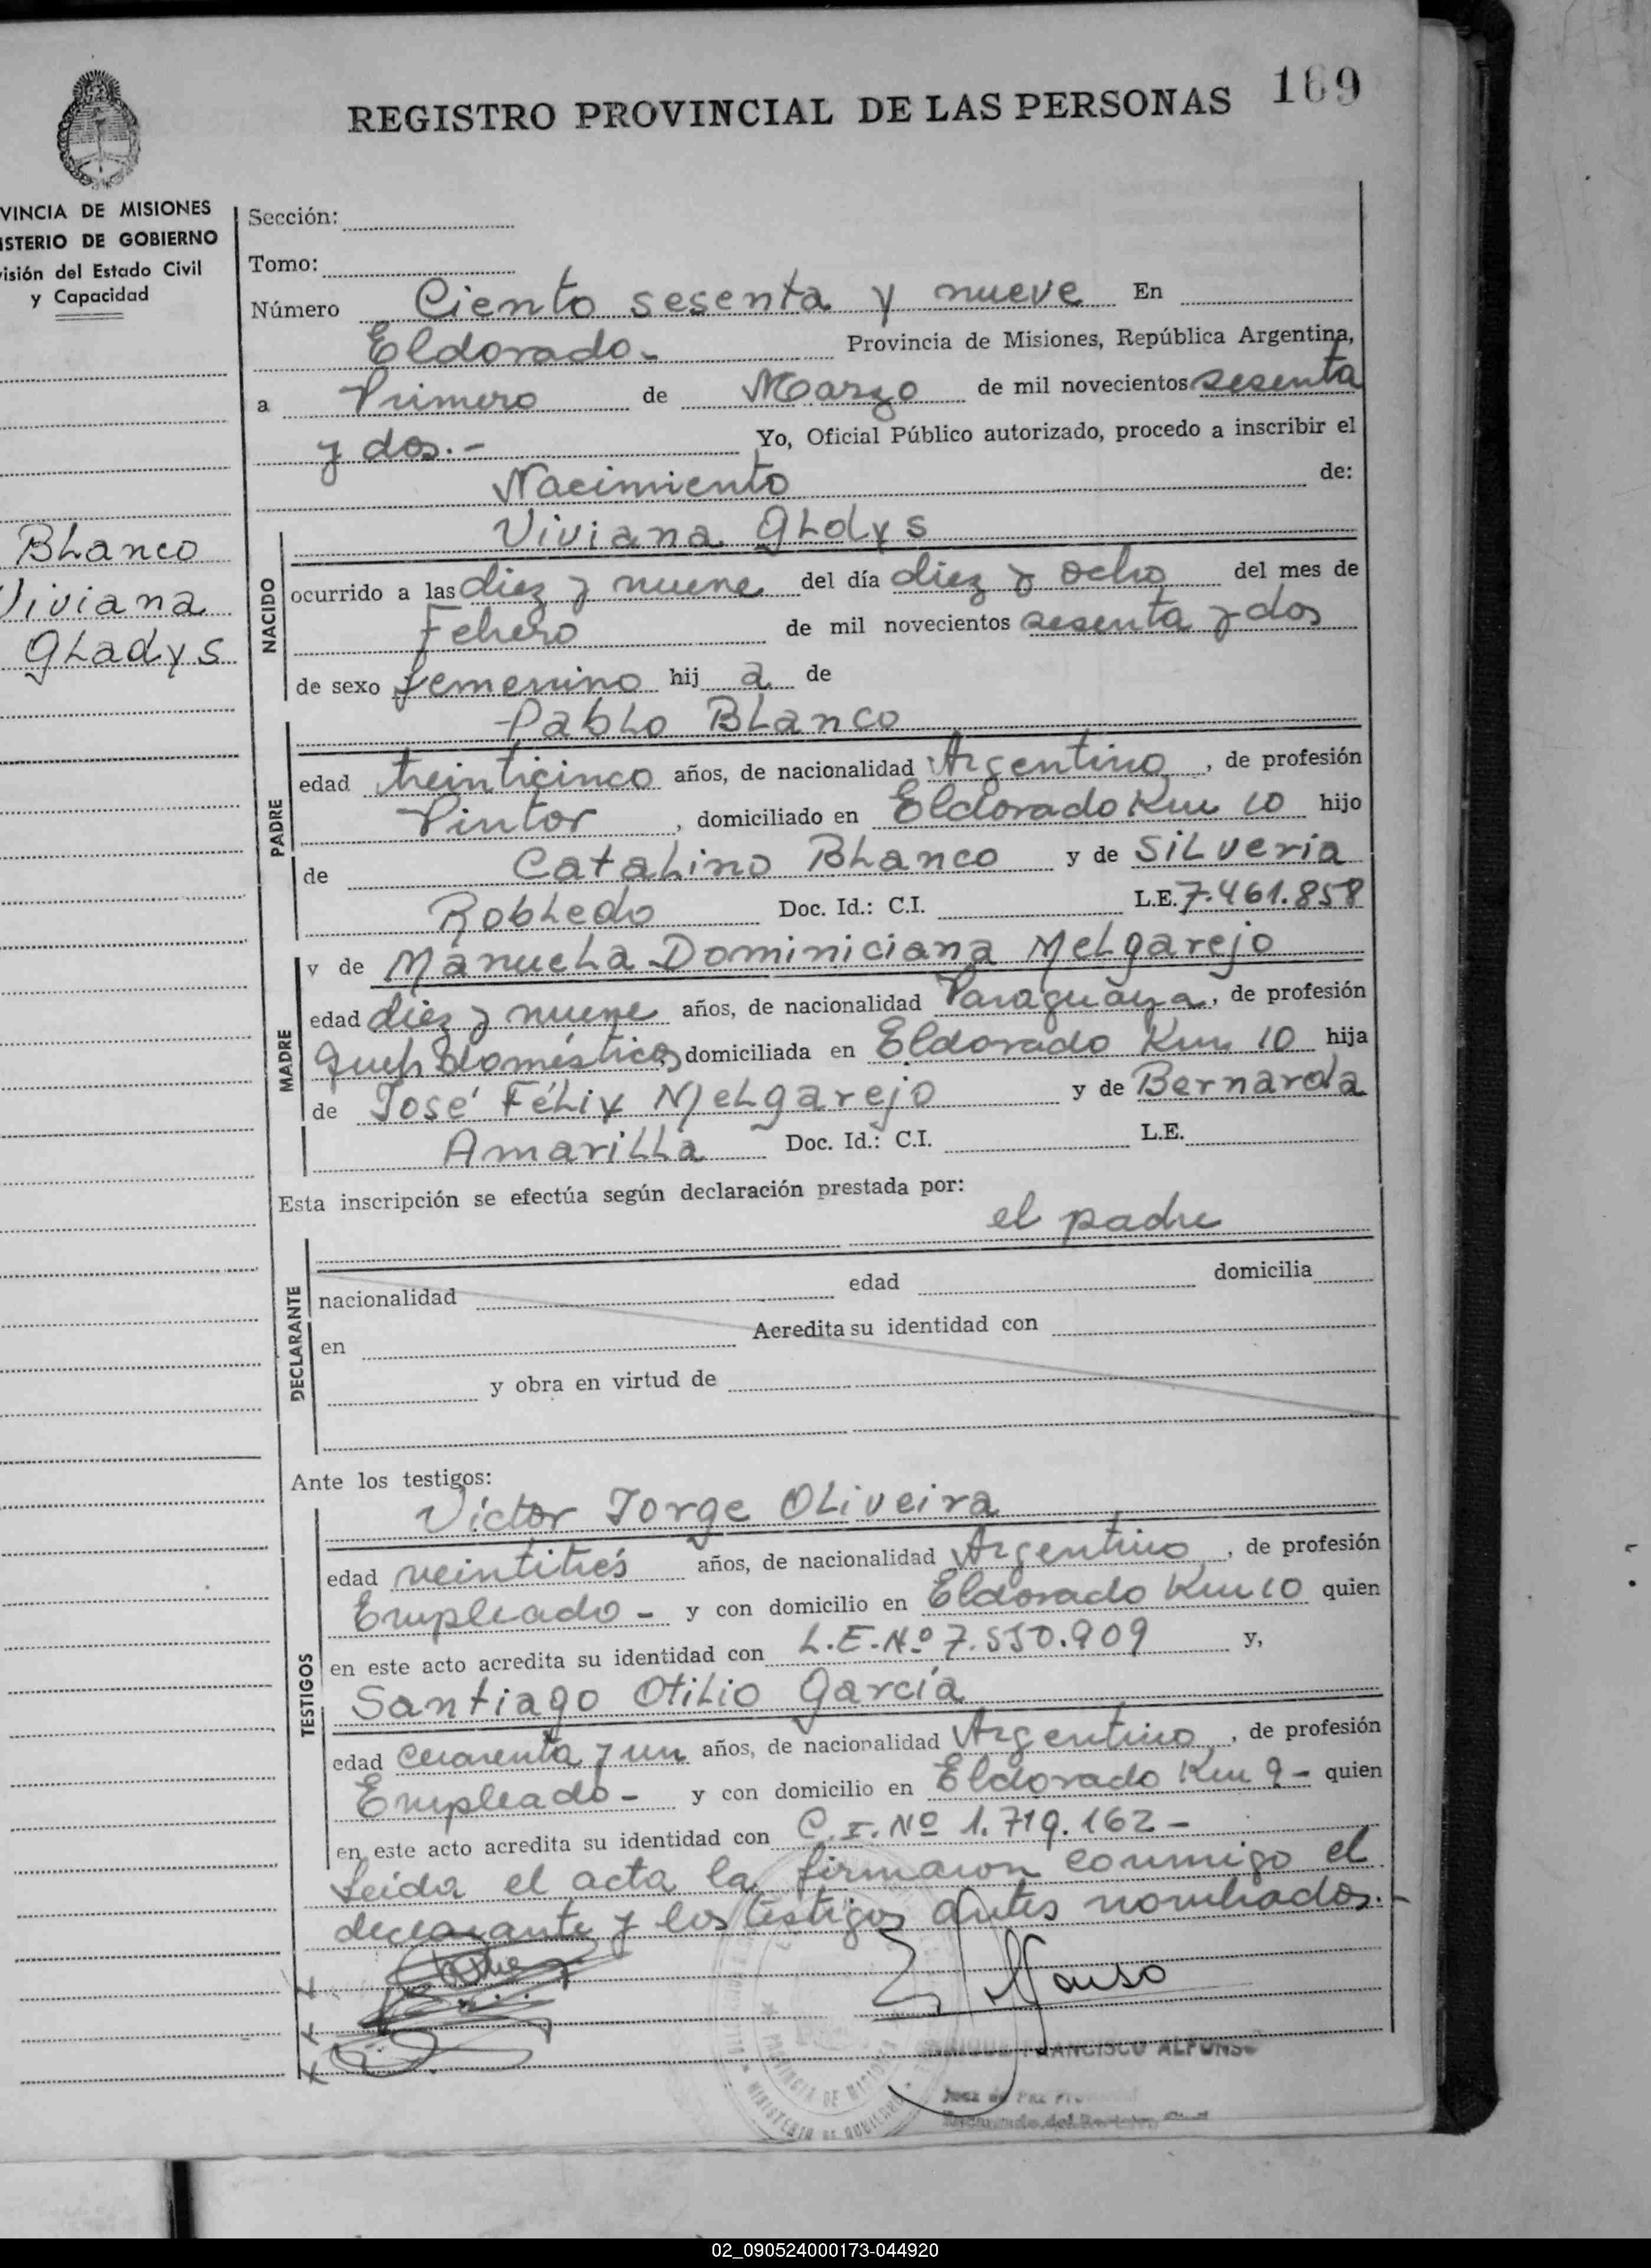 169
REGISTRO PROVINCIAL DE LAS PERSONAS
VINCIA DE MISIONES
ISTERIO DE GOBIERNO
visión del Estado Civil
y Capacidad
Blanco
Viviana
Gladys
Sección:
Tomo:
Número Ciento sesenta y nueve En
Eldorado.- Provincia de Misiones, República Argentina,
a Primero de Marzo de mil novecientos sesenta
y dos.- Yo, Oficial Público autorizado, procedo a inscribir el
Nacimiento de:
NACIDO
Viviana Gldys
ocurrido a las diez y nueve del día diez y ocho del mes de
Febrero de mil novecientos sesenta y dos
de sexo femenino hij a de
PADRE
Pablo Blanco
edad treinticinco años, de nacionalidad Argentino, de profesión
Pintor, domiciliado en Eldorado Km 10 hijo
de Catalino Blanco y de Silveria
Robledo Doc. Id.: C.I. L.E. 7.461.858
MADRE
y de Manuela Dominiciana Melgarejo
edad diez y nueve años, de nacionalidad Paraguaya, de profesión
Queh. domésticos, domiciliada en Eldorado Km 10 hija
de José Félix Melgarejo y de Bernarda
Amarilla Doc. Id.: C.I. L.E.
Esta inscripción se efectúa según declaración prestada por:
el padre
DECLARANTE
nacionalidad edad domicilia
en Acredita su identidad con
y obra en virtud de
Ante los testigos:
TESTIGOS
Víctor Jorge Oliveira
edad veintitrés años, de nacionalidad Argentino, de profesión
Empleado - y con domicilio en Eldorado Km 10 quien
en este acto acredita su identidad con L.E. Nº 7.550.909 y,
Santiago Otilio García
edad cuarenta y un años, de nacionalidad Argentino, de profesión
Empleado - y con domicilio en Eldorado Km 9 - quien
en este acto acredita su identidad con C.I. Nº 1.719.162 -
Leída el acta la firmaron conmigo el
declarante y los testigos antes nombrados.-
ENRIQUE FRANCISCO ALFONSO
Juez de Paz
Encargado del Registro Civil
PROVINCIA DE MISIONES
MINISTERIO DE GOBIERNO
02_090524000173-044920